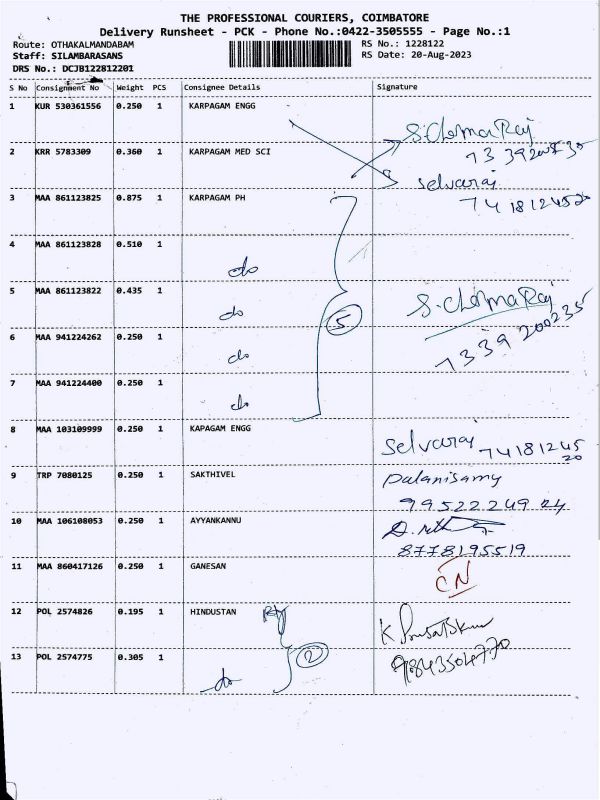 THE PROFESSIONAL COURIERS, COIMBATORE
Delivery Runsheet - PCK - Phone No.:0422-3505555 - Page No.:1
Route: OTHAKALMANDABAM RS No.: 1228122
Staff: SILAMBARASANS RS Date: 20-Aug-2023
DRS No.: DCJB122812201
S No Consignment No Weight PCS Consignee Details Signature
1 KUR 530361556 0.250 1 KARPAGAM ENGG
S.ChermaRaj
2 KRR 5783309 0.360 1 KARPAGAM MED SCI
selvaraj
3 MAA 861123825 0.875 1 KARPAGAM PH
7418124520
4 MAA 861123828 0.510 1
do
5 MAA 861123822 0.435 1
do S.ChermaRaj
5
6 MAA 941224262 0.250 1
do 7339200235
7 MAA 941224400 0.250 1
do
8 MAA 103109999 0.250 1 KAPAGAM ENGG
Selvaraj 7418124520
9 TRP 7080125 0.250 1 SAKTHIVEL Palanisamy
9952224924
10 MAA 106108053 0.250 1 AYYANKANNU
8778195519
11 MAA 860417126 0.250 1 GANESAN
CN
12 POL 2574826 0.195 1 HINDUSTAN
13 POL 2574775 0.305 1 2 9843504770
do